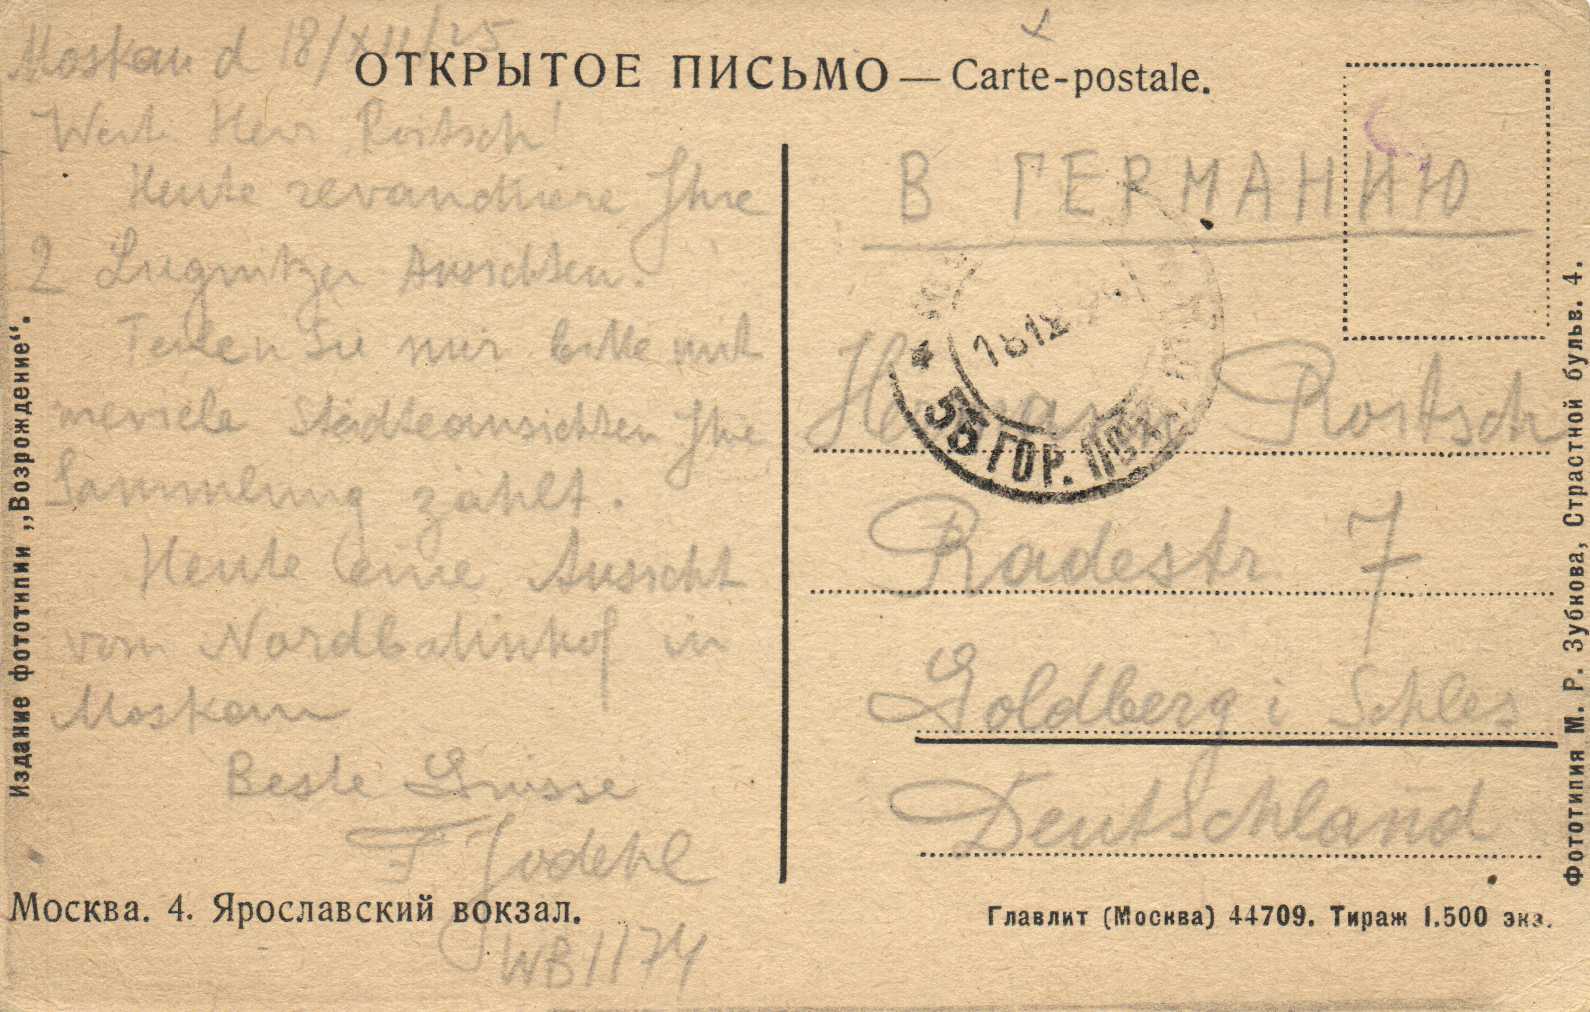 ОТКРЫТОЕ ПИСЬМО — Carte-postale.
Moskau d 18/XII/25
Wert Herr Roitsch!
Heute revanchiere Ihre
2 Liegnitzer Ansichten.
Teilen Sie mir bitte mit
wieviele Städteansichten Ihre
Sammlung zählt.
Heute eine Ansicht
vom Nordbahnhof in
Moskau
Beste Grüsse
F. Jodehl
WB 1174
В ГЕРМАНИЮ
Hermann Roitsch
Radestr 7
Goldberg i Schles
Deutschland
55 ГОР. ПОЧ
1812
Издание фототипии „Возрождение“.
Фототипия М. Р. Зубкова, Страстной бульв. 4.
Москва. 4. Ярославский вокзал.
Главлит (Москва) 44709. Тираж 1.500 экз.